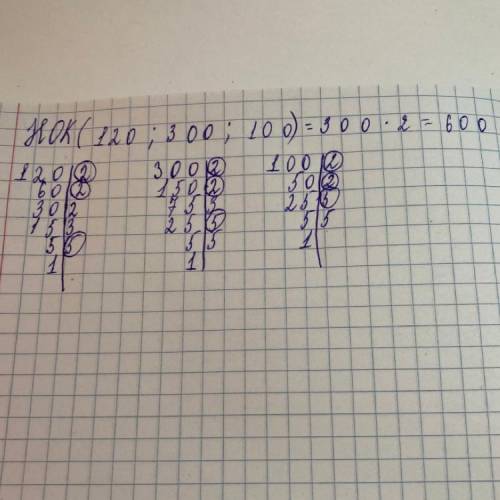 НОК(120; 300; 100)=300·2=600
120|2 300|2 100|2
60|2 150|2 50|2
30|2 75|5 25|5
15|3 25|5 5|5
5|5 5|5 1|
1| 1|